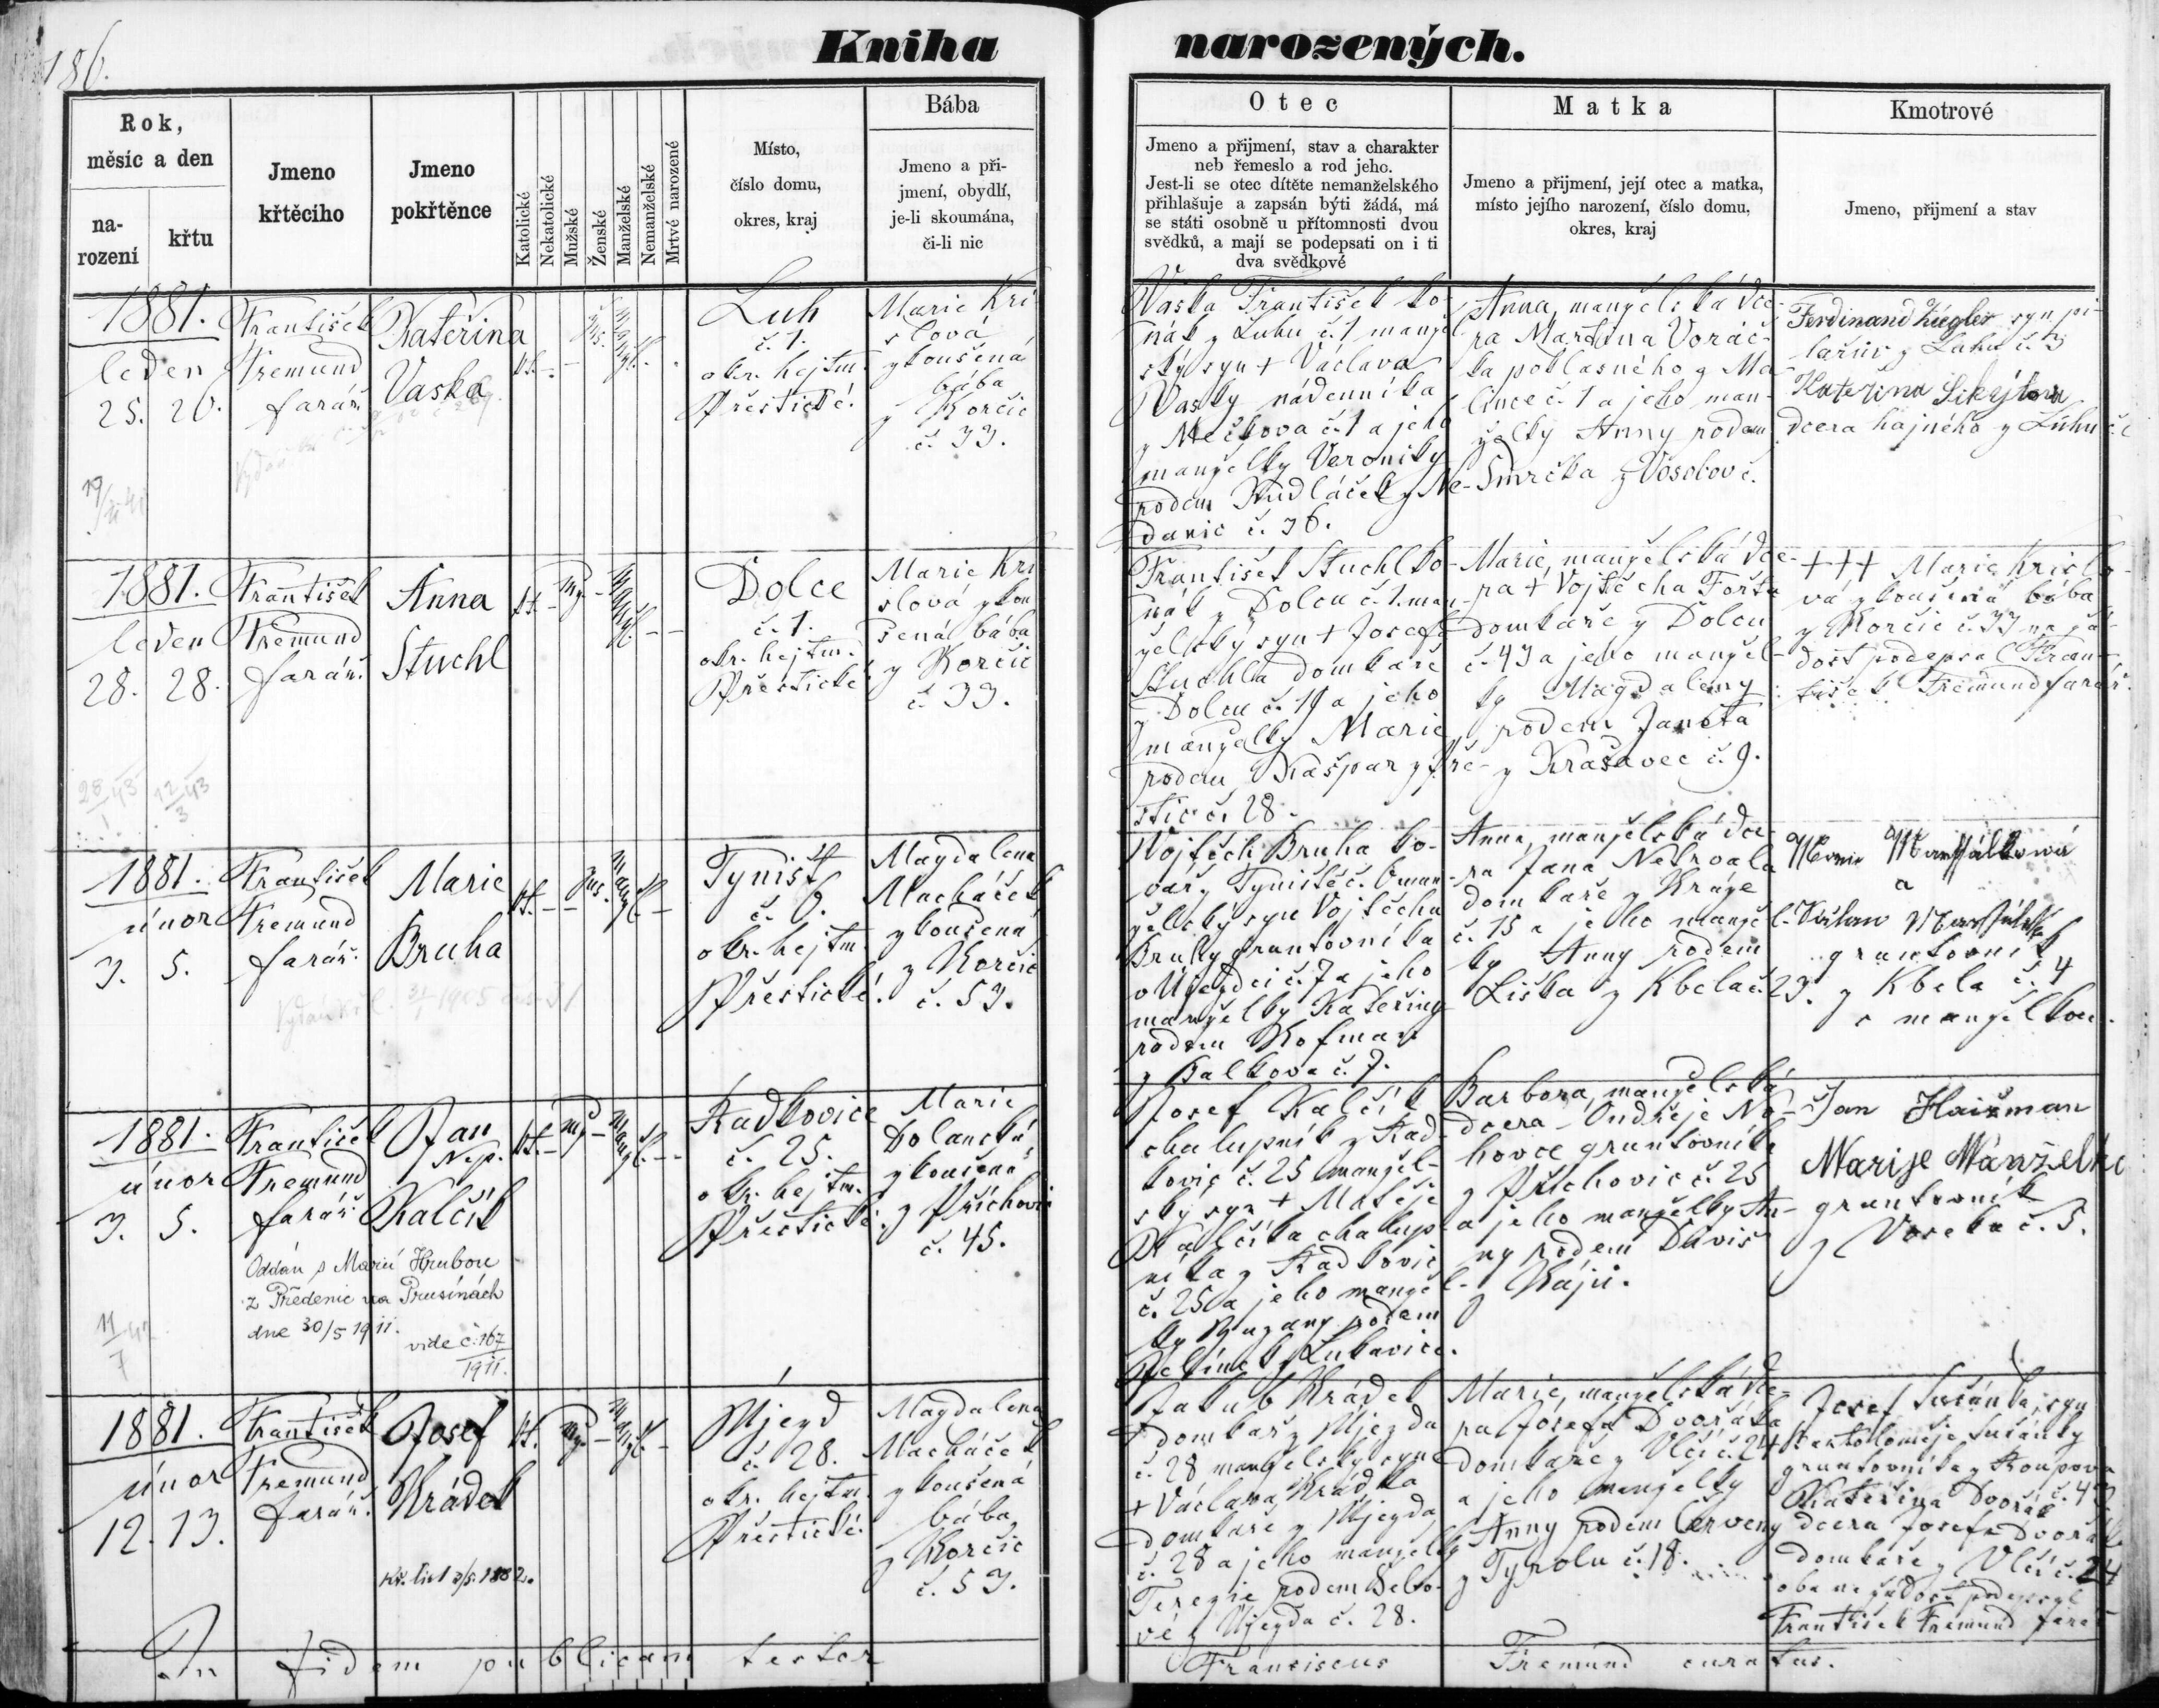 186.
Kniha narozených.
Rok,
měsíc a den
na-
rození
křtu
Jmeno
křtěcího
Jmeno
pokřtěnce
Katolické
Nekatolické
Mužské
Ženské
Manželské
Nemanželské
Mrtvé narozené
Místo,
číslo domu,
okres, kraj
Bába
Jmeno a při-
jmení, obydlí,
je-li skoumána,
či-li nic
Otec
Jmeno a přijmení, stav a charakter
neb řemeslo a rod jeho.
Jest-li se otec dítěte nemanželského
přihlašuje a zapsán býti žádá, má
se státi osobně u přítomnosti dvou
svědků, a mají se podepsati on i ti
dva svědkové
Matka
Jmeno a přijmení, její otec a matka,
místo jejího narození, číslo domu,
okres, kraj
Kmotrové
Jmeno, přijmení a stav
1881.
leden
25. 26.
František
Fremund
farář.
Kateřina
Vaska
Luh
č. 1.
okr. hejtm.
Přestické.
Marie Kri-
slová
zkoušená
bába
z Korčic
č. 33.
Vaska František ko-
nák z Luhu č. 1 manžel-
ský syn + Václava
Vasky nádenníka
z Mečkova č. 1 a jeho
manželky Veroniky
rodem z Ne-
danic č. 36.
Anna, manželská dce-
ra Martina Voráč-
ka poklasného z Ma-
lince č. 1 a jeho man-
želky Anny rodem
Smrčka z Vosobov č.
Ferdinand Kugler syn pi-
lařův z Luhu č. 3
Kateřina
dcera hajného z Luhu č.
1881.
leden
28. 28.
František
Fremund
farář.
Anna
Stuchl
Dolce
č. 1.
okr. hejtm.
Přestické
Marie Kri-
slová zkou-
šená bába
z Korčic
č. 33.
František Stuchl ko-
nák z Dolcu č. 1. man-
želský syn + Josefa
Stuchla domkáře
z Dolcu č. 19 a jeho
manželky Marie
rodem Kašpar z Pře-
stic č. 28.
Marie, manželská dce-
ra + Vojtěcha Fořta
domkáře z Dolcu
č. 43 a jeho manžel-
ky Magdaleny
rodem Janota
z Krašovec č. 9.
+++ Marie Krislo-
vá zkoušená bába
z Korčic č. 33 na žá-
dost podepsal Fran-
tišek Fremund farář.
28/1 43 12/3 43
1881.
únor
3. 5.
František
Fremund
farář.
Marie
Bruha
Tyništ
č. 6.
okr. hejtm.
Přestické.
Magdalena
Macháček
zkoušená
z Korčic
č. 53.
Vojtěch Bruha ko-
vář z Tyniště č. 6 man-
želský syn Vojtěcha
Bruhy gruntovníka
v Újezdci č. 7 a jeho
manželky Kateřiny
rodem Hofman
z Balkova č. 7.
Anna, manželská dce-
ra Jana Nekvala
domkáře z Kráze
č. 15 a jeho manžel-
ky Anny rodem
Liška z Kbela č. 23.
Marie Maršálková
a
Václav Maršálek
gruntovník
z Kbela č. 4
s manželkou.
1881.
únor
3. 5.
František
Fremund
farář
Jan
Nep.
Kalčík
Oddán s Marií Hrubou
z Předenic na Prusinách
dne 30/5 1911.
vide č. 167
1911.
11/7 42
Radkovice
č. 25.
okr. hejtm.
Přestické.
Marie
Dolanská,
zkoušená
z Příchovic
č. 45.
Josef Kalčík
chalupník z Rad-
kovic č. 25 manžel-
ský syn + Matěje
Kalčíka chalup-
níka z Radkovic
č. 25 a jeho manžel-
ky Zuzany rodem
Jelínek z Lukavice.
Barbora, manželská
dcera Ondřeje No-
hovce gruntovníka
z Příchovic č. 25
a jeho manželky An-
ny rodem Daviš
z Háje.
Jan Haisman
Marije Manželki
gruntovník
z Voseka č. 5.
1881.
únor
12. 13.
František
Fremund
farář.
Josef
Krádek
Kř. list 3/5 1882.
Újezd
č. 28.
okr. hejtm.
Přestické.
Magdalena
Macháček
zkoušená
bába,
z Korčic
č. 53.
Jakub Krádek
domkář z Újezda
č. 28 manželský syn
+ Václava Krádka
domkáře z Újezda
č. 28 a jeho manželky
Terezie rodem
z Újezda č. 28.
Marie, manželská dce-
ra Josefa Dvořáka
domkáře z Vlčí č. 24
a jeho manželky
Anny rodem Červený
z Tyrolu č. 18.
Josef Sušánka, syn
Bartoloměje Sušánky
gruntovníka z Roupova
č. 43
Kateřina Dvořák
dcera Josefa Dvořák
domkáře z Vlčí č. 24
oba na žádost podepsal
František Fremund farář
In fidem publicam testor
Franciscus Fremund curatus.